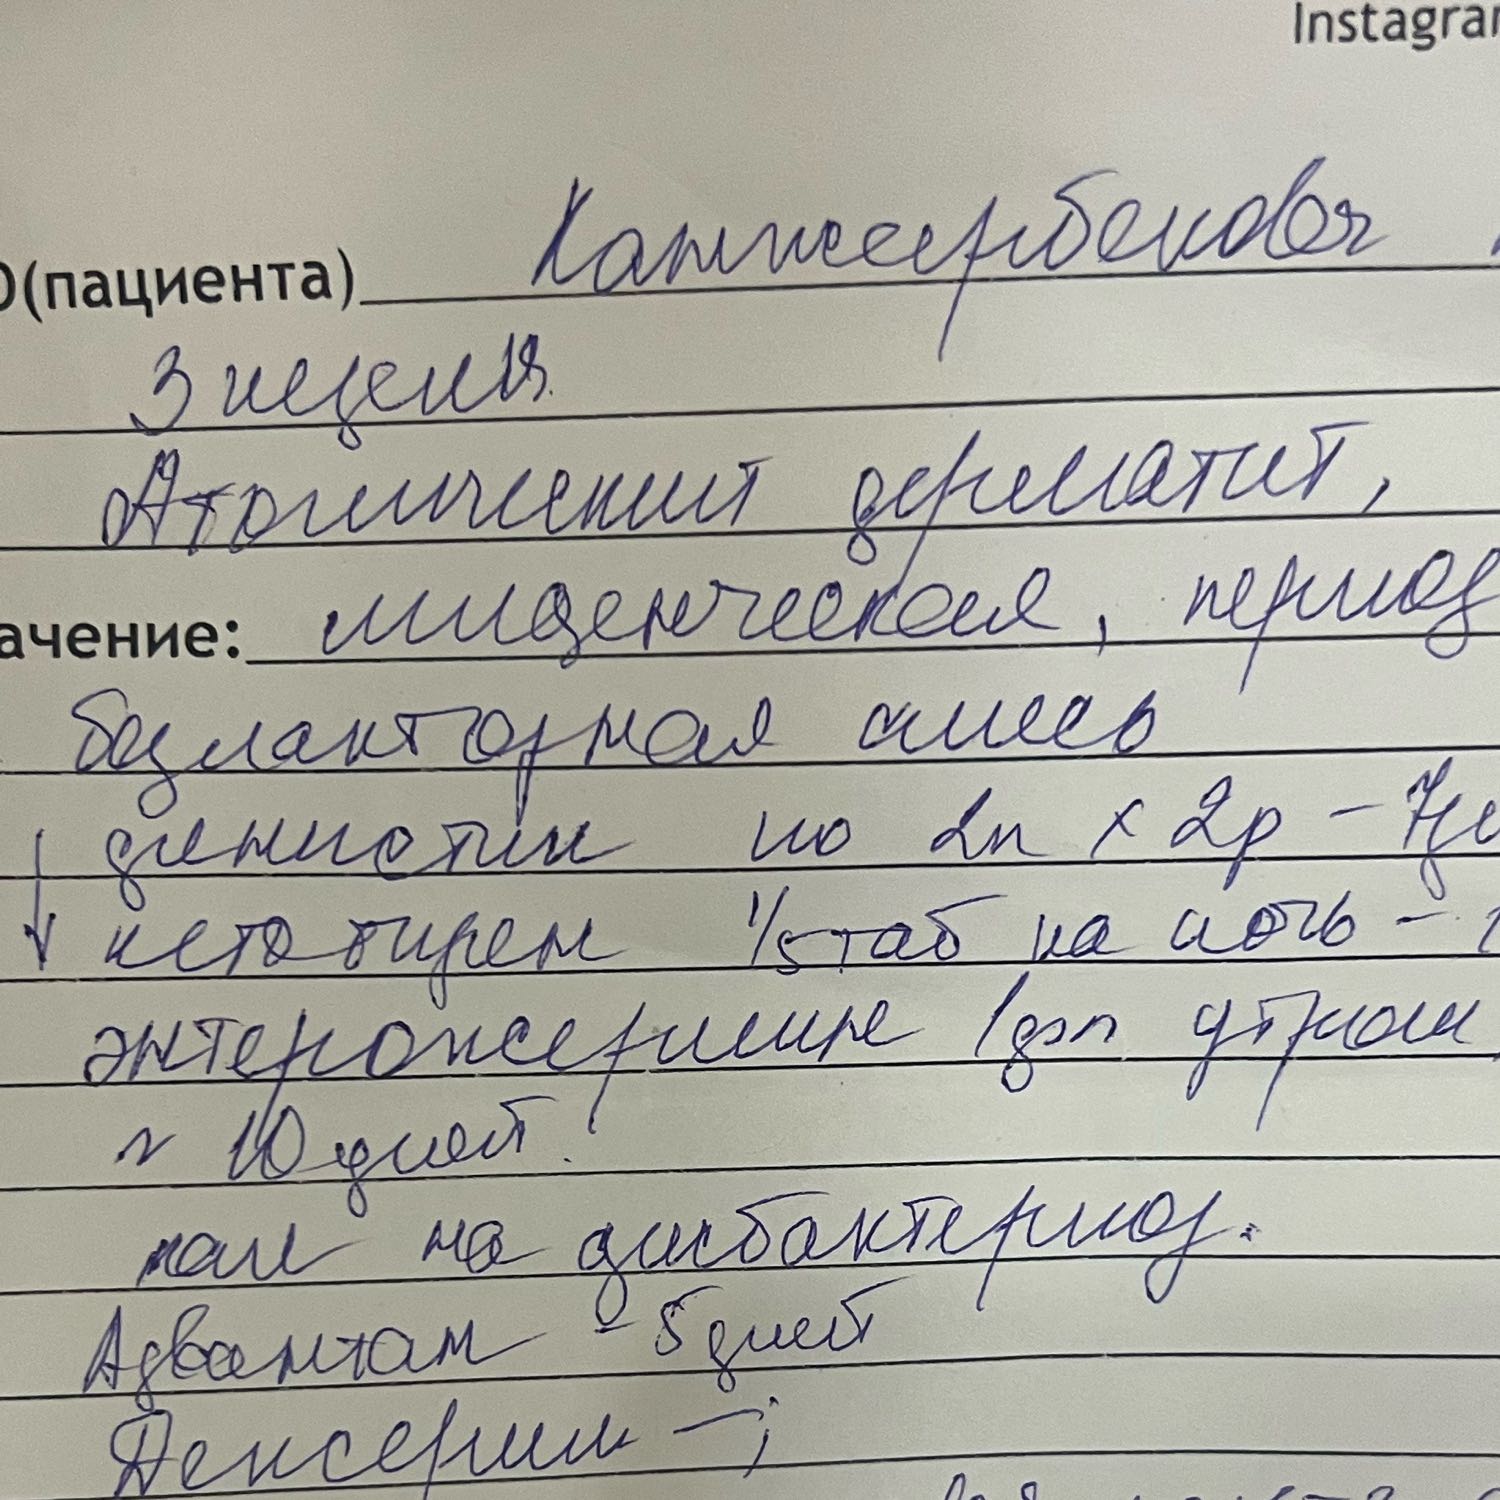 Instagra
О(пациента) Канжербекова
3 недели
Атопический дерматит,
ачение: младенческая, период
безлакторная смесь
диннистин по 2п х 2р - 7
кетотифен 1/5 таб на ночь -
энтерожермине 1фл утром,
~ 10 дней.
кал на дисбактериоз.
Адвантан - 5 дней
Дексерил - ;